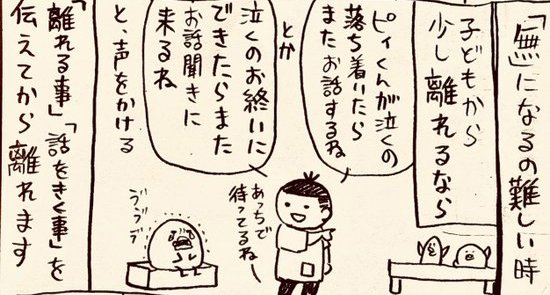 「無」になるの難しい時
子どもから
少し離れるなら
ピィくんが泣くの
落ち着いたら
またお話するね
とか
泣くのお終いに
できたらまた
お話聞きに
来るね
と、声をかける
あっちで
待ってるね
ヴヴヴ
「離れる事」「話をきく事」を
伝えてから離れます